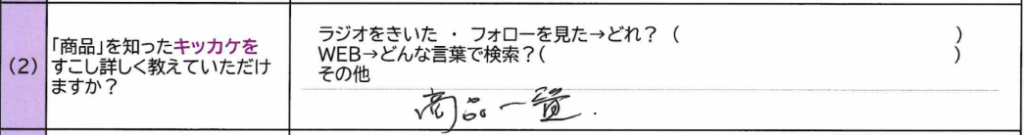 (2)
「商品」を知ったキッカケを
すこし詳しく教えていただけ
ますか？
ラジオをきいた ・ フォローを見た→どれ？ (　　　　　)
WEB→どんな言葉で検索？(　　　　　)
その他
商品一覧.